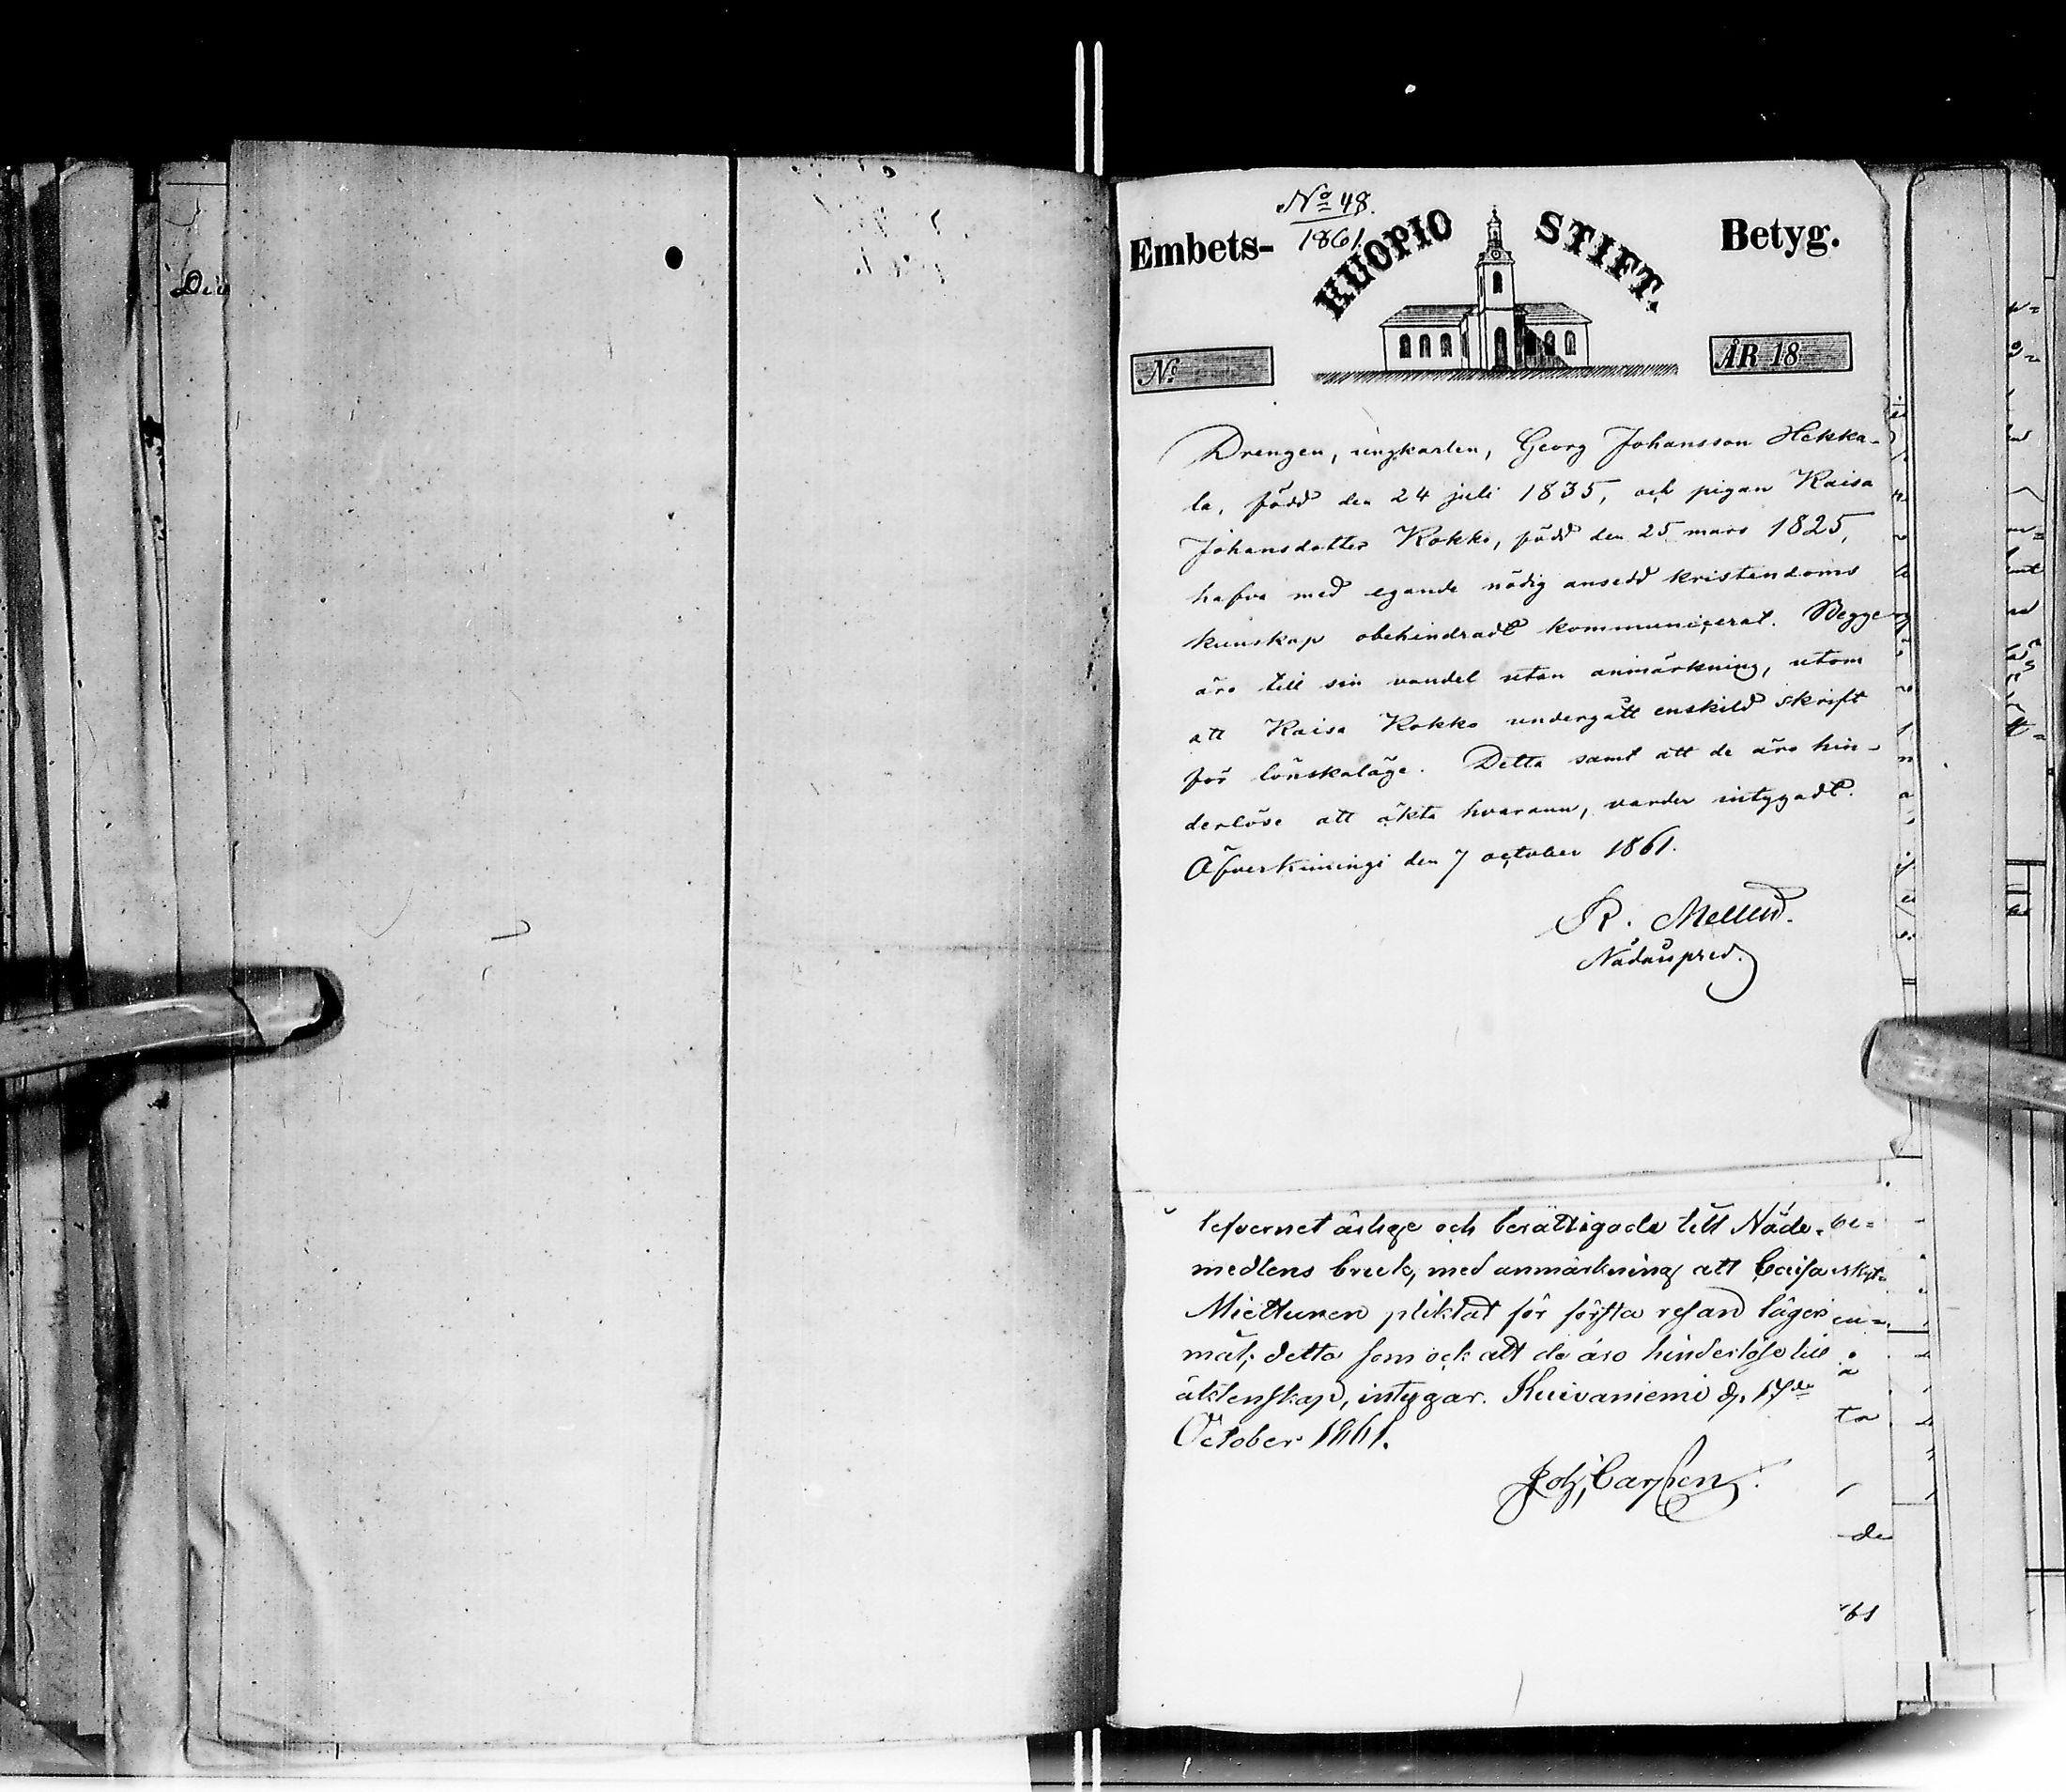 No 48.
1861.
Embets- KUOPIO STIFT. Betyg.
No ÅR 18
Drengen, ungkarlen, Georg Johansson Hekka-
la, född den 24 juli 1835, och pigan Kaisa
Johansdotter Kokko, född den 25 mars 1825,
hafva med egande nödig ansedd kristendoms
kunskap obehindradt kommunicerat. Begge
äro till sin vandel utan anmärkning, utom
att Kaisa Kokko undergått enskild skrift
för lönskaläge. Detta samt att de äro hin-
derlöse att äkta hvarann, varder intygadt.
Öfverkiiminge den 7 october 1861.
R. Mellin.
Nådårspred.
lefvernet ärlige och berättigade till Nåde-
medlens bruk, med anmärkning att Caisa
Miettunen pliktat för första resan lägers
mål; detta som ock att de äro hinderlöse till
äktenskap, intygar. Kuivaniemi d. 17de
October 1861.
Joh. Carpen